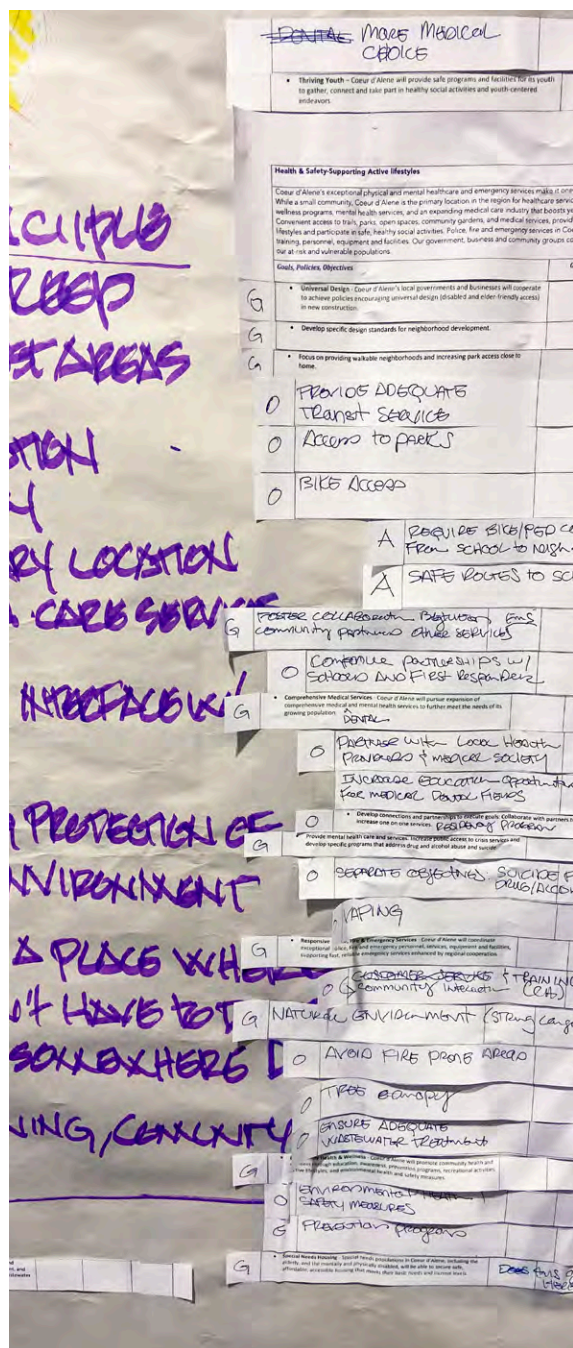 MORE MEDICAL
CHOICE
• Thriving Youth – Coeur d'Alene will provide safe programs and facilities for its youth
to gather, connect and take part in healthy social activities and youth-centered
endeavors.
Health & Safety-Supporting Active lifestyles
Coeur d'Alene's exceptional physical and mental healthcare and emergency services make it one
While a small community, Coeur d'Alene is the primary location in the region for healthcare
wellness programs, mental health services, and an expanding medical care industry that boosts
Convenient access to trails, parks, open spaces, community gardens, and medical services,
lifestyles and participate in safe, healthy social activities. Police, fire and emergency services in
training, personnel, equipment and facilities. Our government, business and community groups
our at-risk and vulnerable populations.
Goals, Policies, Objectives
G • Universal Design - Coeur d'Alene's local governments and businesses will cooperate
to achieve policies encouraging universal design (disabled and elder-friendly access)
in new construction.
G • Develop specific design standards for neighborhood development.
G • Focus on providing walkable neighborhoods and increasing park access close to
home.
O PROVIDE ADEQUATE
TRANSIT SERVICE
O Access to parks
O BIKE ACCESS
A REQUIRE BIKE/PED
FROM SCHOOL to
A SAFE ROUTES to
G FOSTER COLLABORATION BETWEEN EMS
community partners other SERVICES
O CONTINUE partnerships w/
Schools AND FIRST Responders
G • Comprehensive Medical Services - Coeur d'Alene will pursue expansion of
comprehensive medical and mental health services to further meet the needs of its
growing population.
^ DENTAL
O PARTNER WITH LOCAL HEALTH
PROVIDERS & MEDICAL SOCIETY
INCREASE EDUCATION
FOR MEDICAL DENTAL FIELDS
O • Develop connections and partnerships to execute goals: Collaborate with partners to
increase one on one services. RESIDENCY PROGRAM
G Provide mental health care and services. Increase public access to crisis services and
develop specific programs that address drug and alcohol abuse and suicide.
O SEPARATE OBJECTIVES SUICIDE
DRUG/
VAPING
G • Responsive & Emergency Services - Coeur d'Alene will coordinate
exceptional police, fire and emergency personnel, services, equipment and facilities,
supporting fast, reliable emergency services enhanced by regional cooperation.
O CUSTOMER SERVICE & TRAINING
community interaction
G NATURAL ENVIRONMENT (strong
O AVOID FIRE PRONE AREAS
O TREE canopy
O ENSURE ADEQUATE
WASTEWATER TREATMENT
G Health & Wellness - Coeur d'Alene will promote community health and
through education, awareness, prevention programs, recreational activities,
and environmental health and safety measures
O ENVIRONMENTAL HEALTH
SAFETY MEASURES
G PREVENTION programs
G • Special Needs Housing - Special needs populations in Coeur d'Alene, including the
elderly, and the mentally and physically disabled, will be able to secure safe,
affordable, accessible housing that meets their basic needs
DOES EMS
AREAS
LOCATION
CARE
INTERFACE W/
PROTECTION OF
A PLACE
HAVE TO